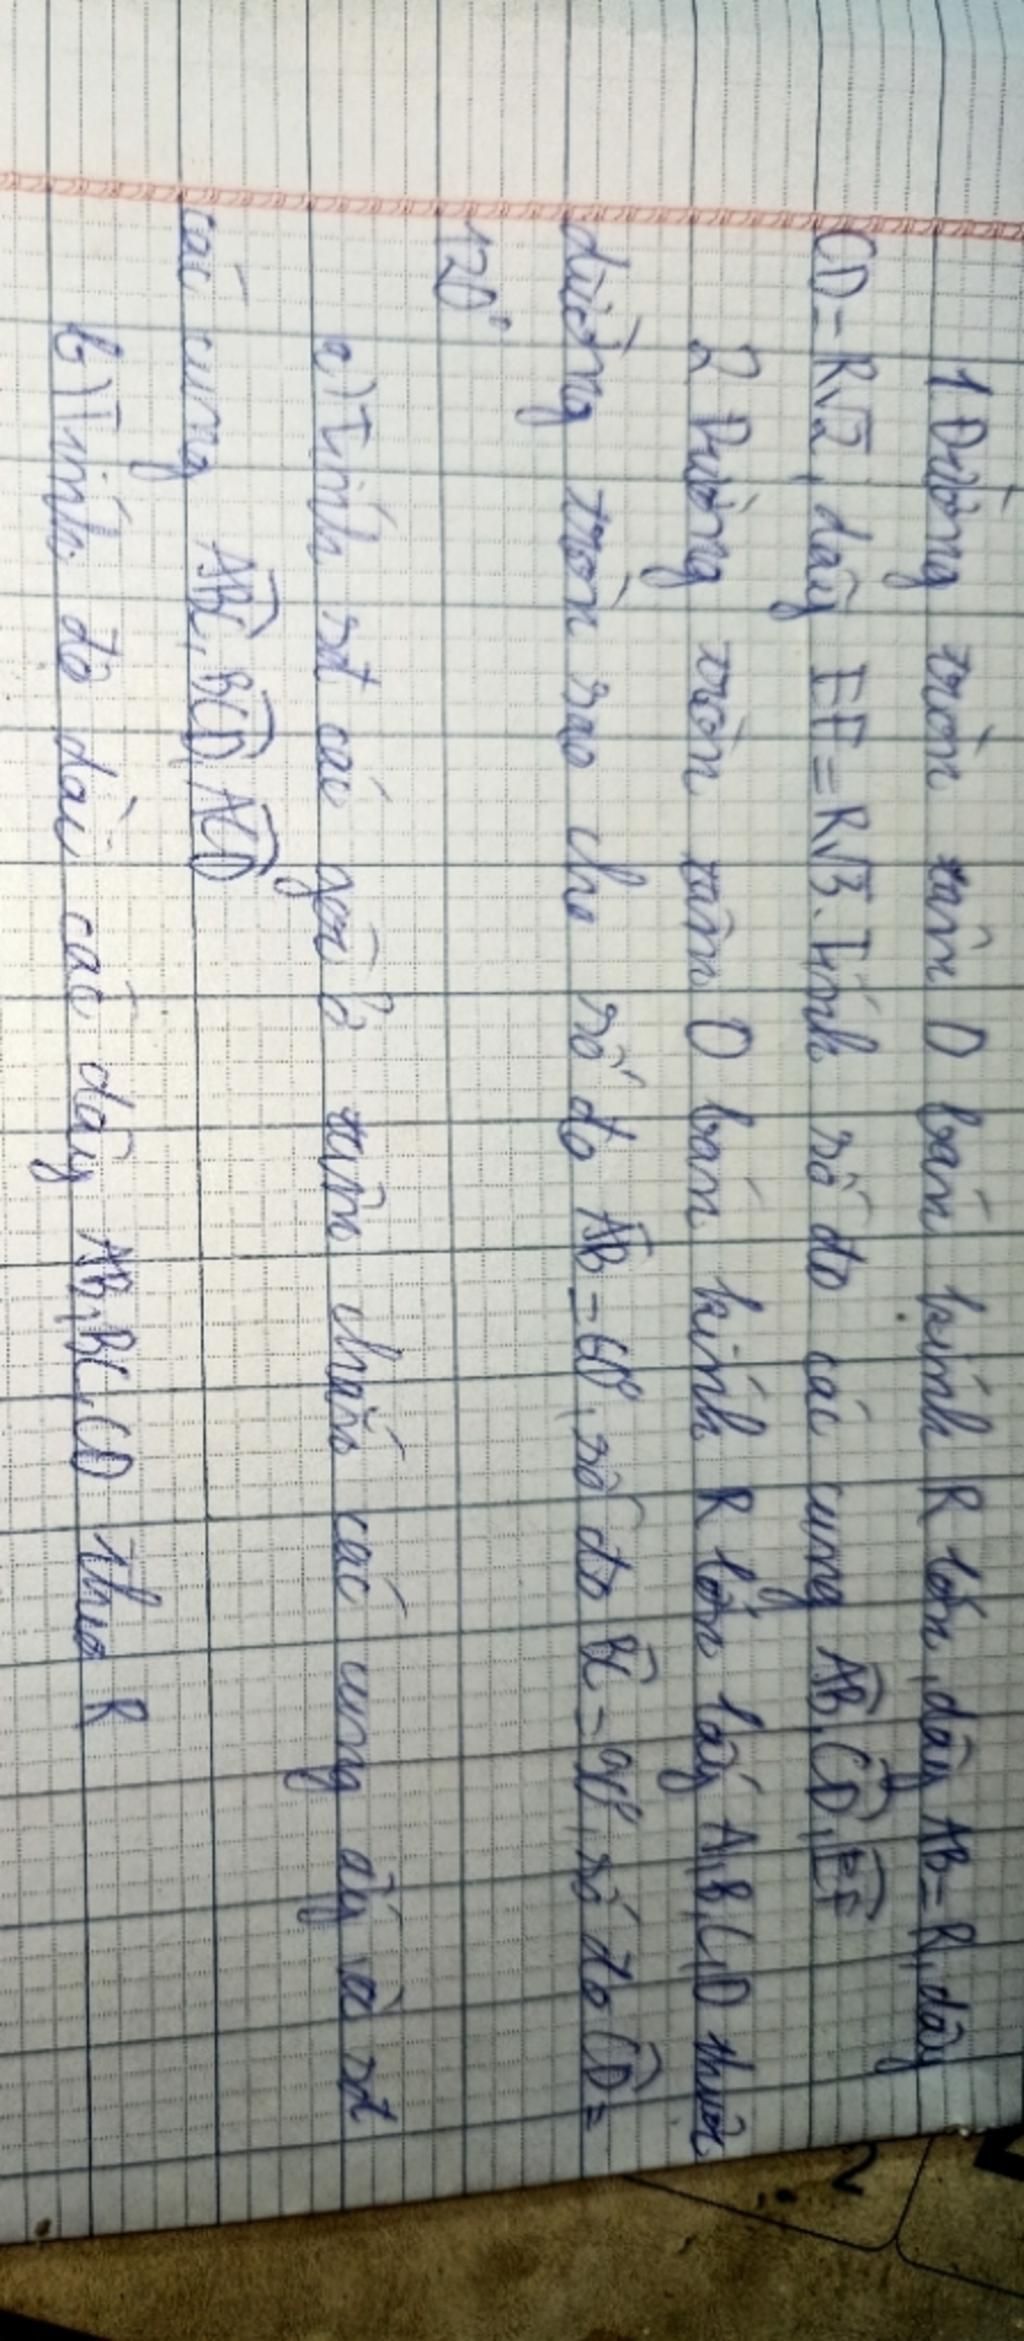 1 Đường tròn tâm O bán kính R lớn, dây AB = R, dây
CD = R√2, dây EF = R√3. Tính số đo các cung AB, CD, EF
2 Đường tròn tâm O bán kính R lớn lấy A, B, C, D thuộc
đường tròn sao cho số đo AB = 60°, số đo BC = 90°, số đo CD =
120°
a) Tính sđ các góc ở tâm chắn các cung ấy và sđ
các cung ABC, BCD, ACD
b) Tính độ dài các dây AB, BC, CD theo R
2